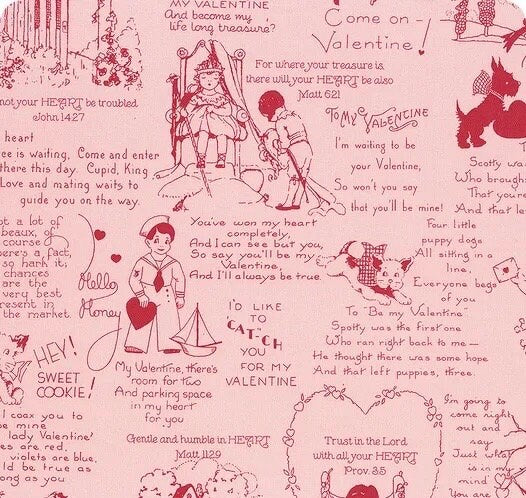 MY VALENTINE
And become my
life long treasure?
Come on -
Valentine!
For where your treasure is,
there will your HEART be also
Matt 6:21
not your HEART be troubled
John 14:27
heart
ee is waiting, Come and enter
there this day. Cupid, King
Love and mating waits to
guide you on the way.
To My VALENTINE
I'm waiting to be
your Valentine,
So won't you say
that you'll be mine!
Scotty wa
Who brough
That you're
And that le
ot a lot of
beaux, of
course
here's a fact,
so hark it;
chances
are the
very best
resent in
the market.
Hello
Honey
You've won my heart
completely,
And I can see but you,
So say you'll be my
Valentine,
And I'll always be true.
Four little
puppy dogs
All sitting in a
line,
Everyone begs
of you
To "Be my Valentine"
Spotty was the first one
Who ran right back to me —
He thought there was some hope
And that left puppies, three.
I'D LIKE
TO
"CAT"CH
YOU
FOR MY
VALENTINE
HEY!
SWEET
COOKIE!
My Valentine, there's
room for two
And parking space
in my heart
for you
I coax you to
be mine
lady Valentine?
es are red,
violets are blue,
ld be true as
ong as you
Gentle and humble in HEART
Matt 11:29
Trust in the Lord
with all your HEART
Prov. 3:5
I'm going to
come right
out and
say
Just what
is in my
mind
You are